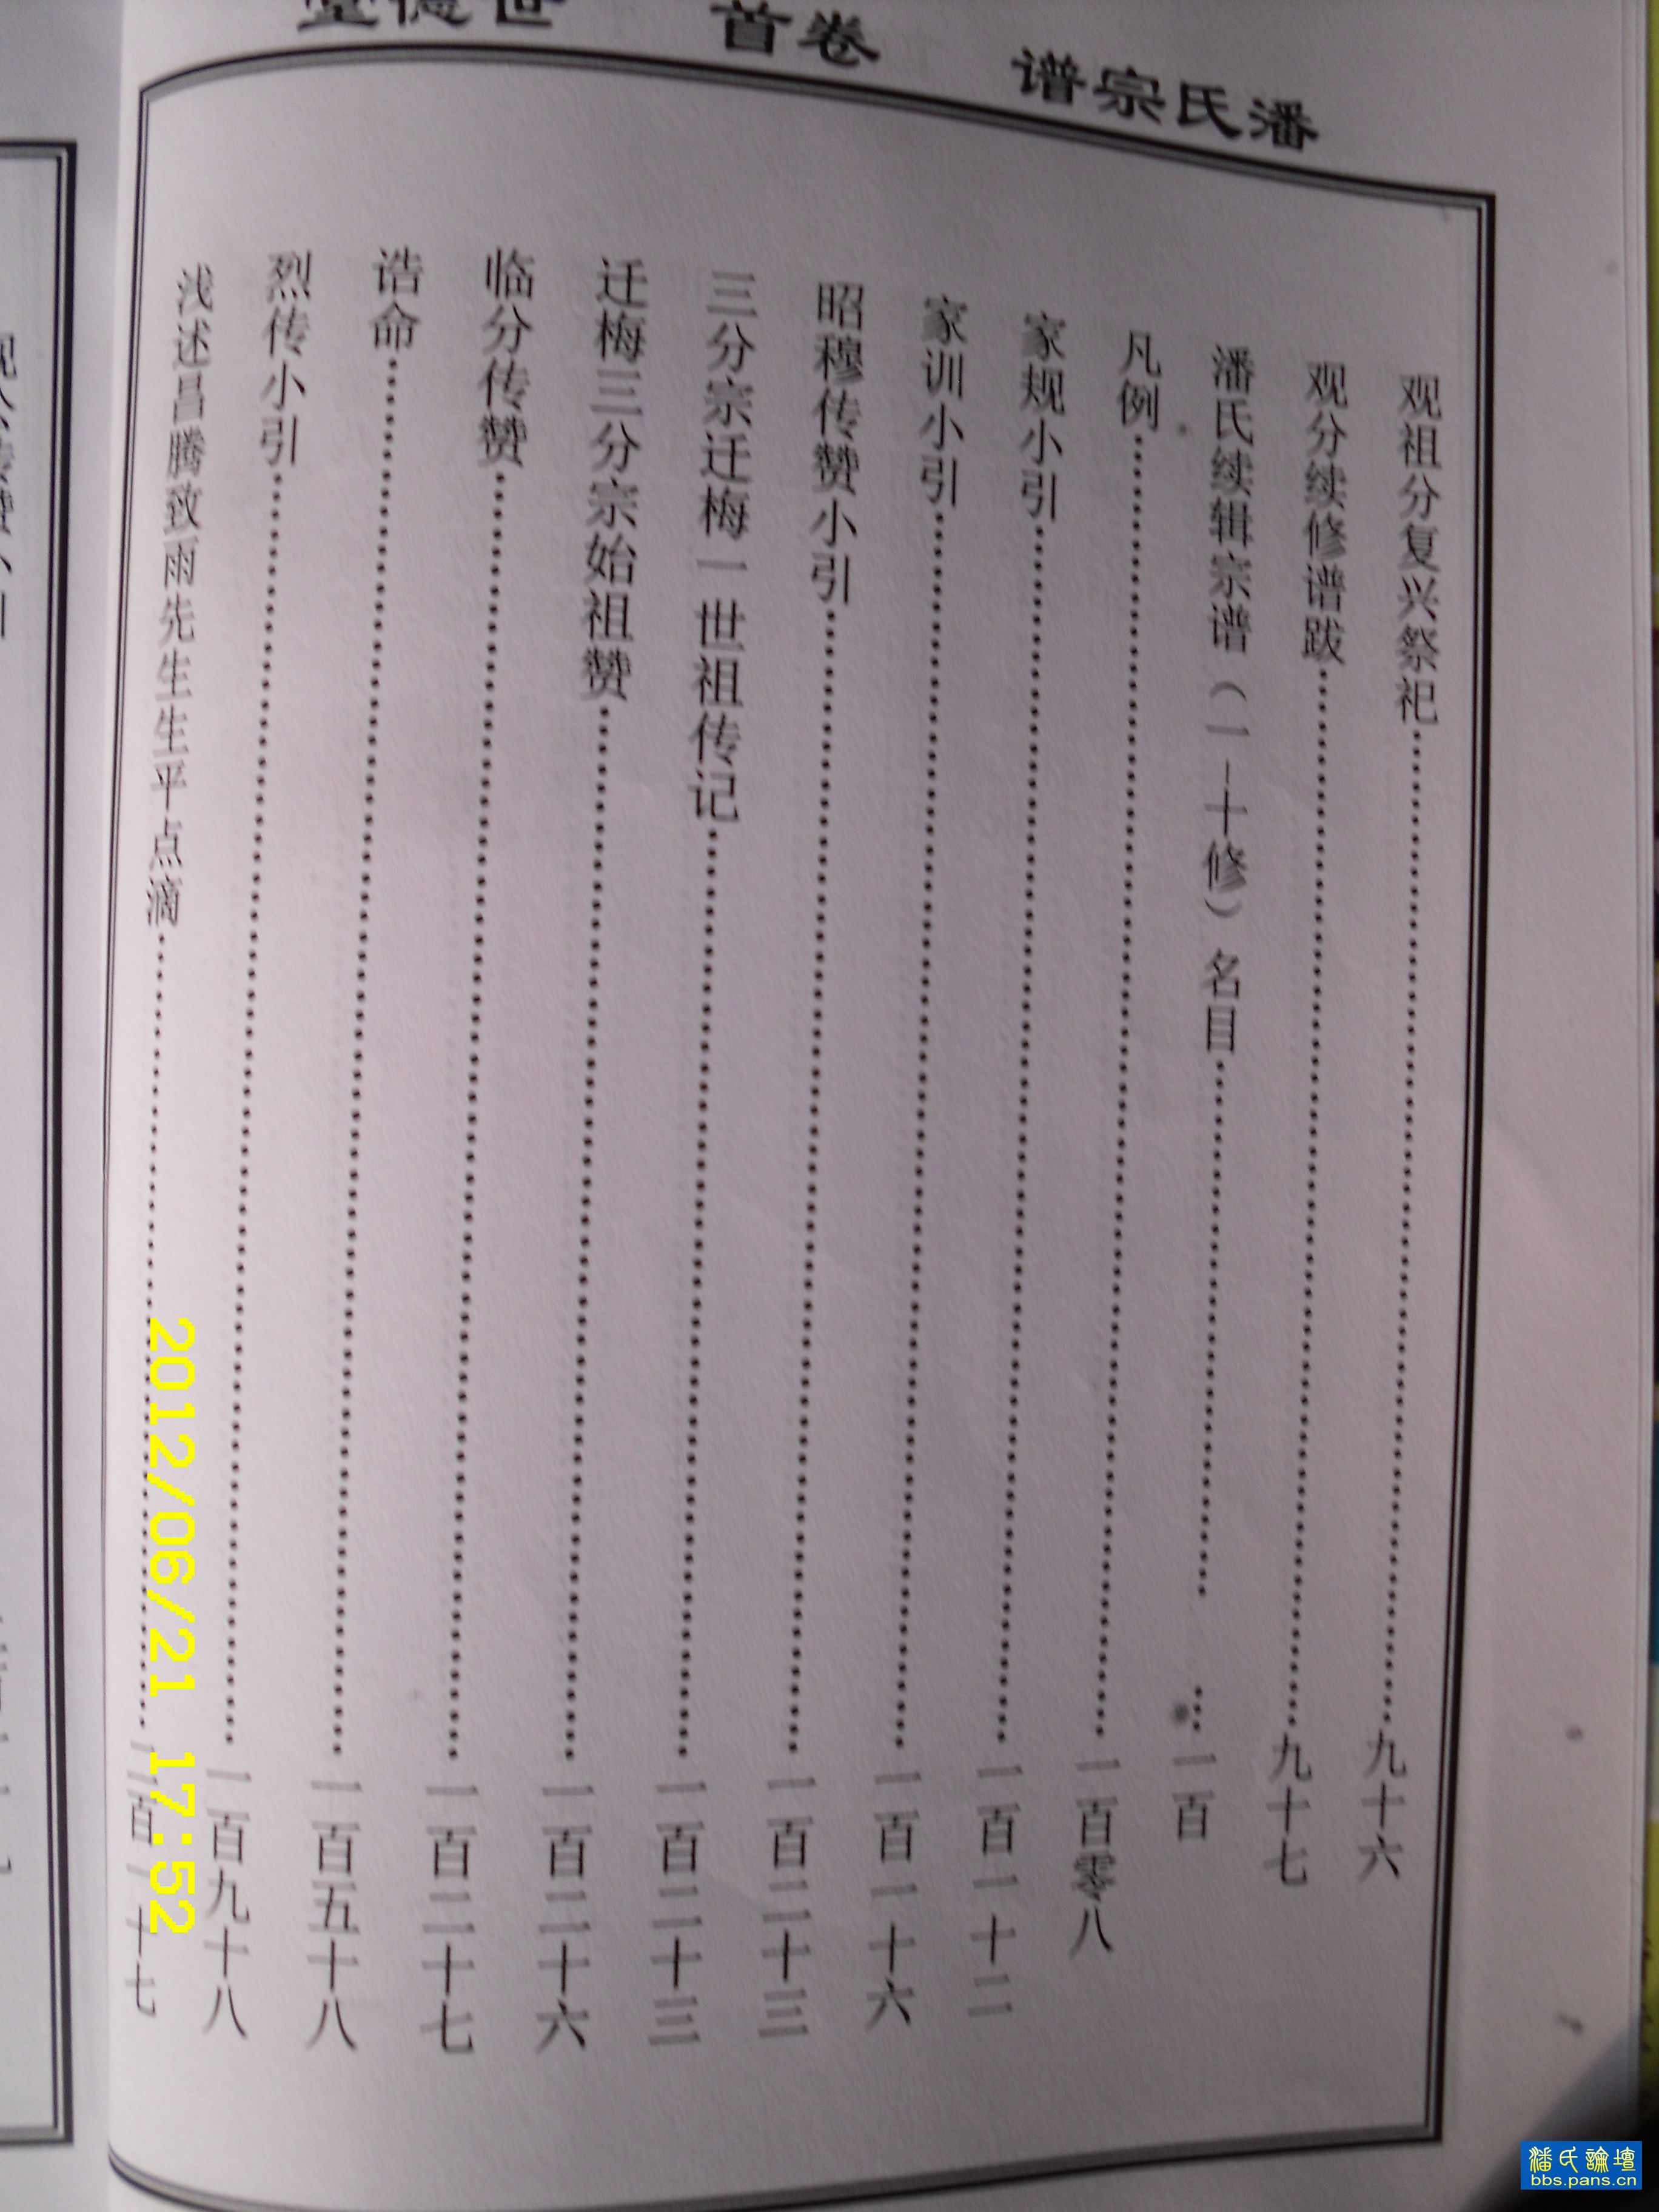 潘氏宗谱 卷首 世德堂
观祖分复兴祭祀……九十六
观分续修谱跋……九十七
潘氏续辑宗谱（一—十修）名目……一百
凡例……一百零八
家规小引……一百一十二
家训小引……一百一十六
昭穆传赞小引……一百二十三
三分宗迁梅一世祖传记……一百二十三
迁梅三分宗始祖赞……一百二十六
临分传赞……一百二十七
诰命……一百五十八
烈传小引……一百九十八
浅述昌腾致雨先生生平点滴……二百一十七
2012/06/21 17:52
潘氏論壇
bbs.pans.cn